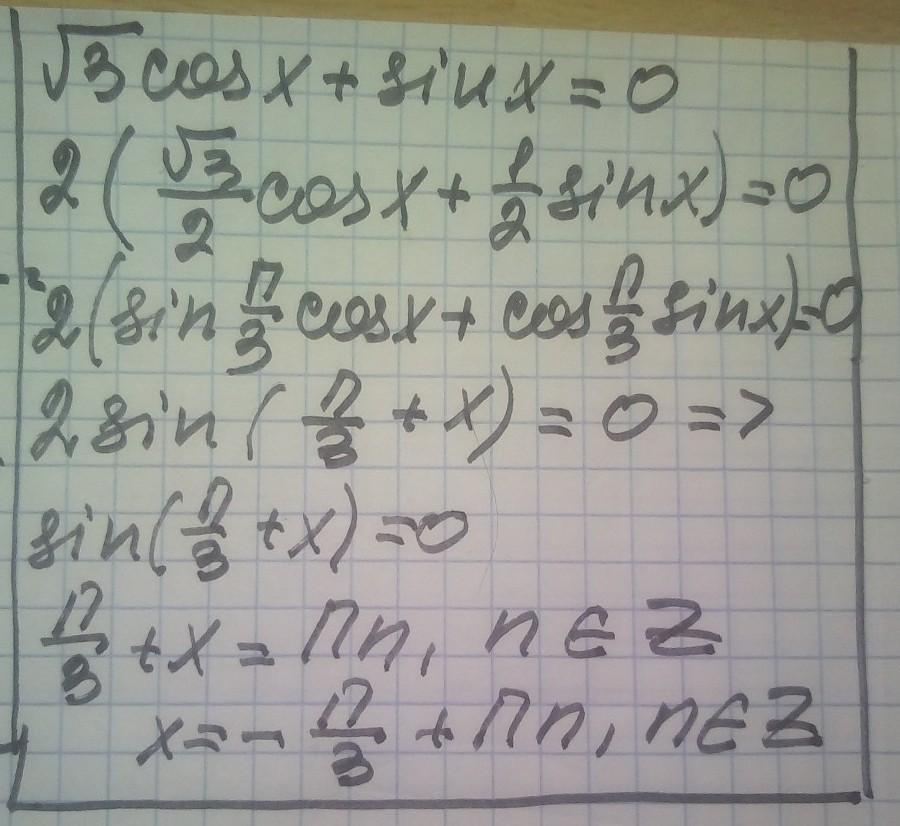 √3 cos x + sin x = 0
2 (√3/2 cos x + 1/2 sin x) = 0
2 (sin π/3 cos x + cos π/3 sin x) = 0
2 sin (π/3 + x) = 0 =>
sin (π/3 + x) = 0
π/3 + x = πn, n ∈ Z
x = - π/3 + πn, n ∈ Z